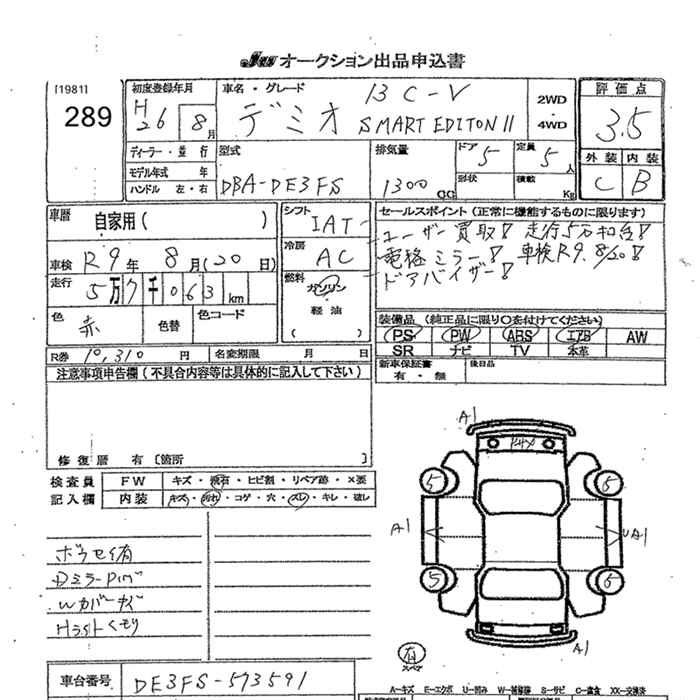 JU オークション出品申込書
[1981]
289
初度登録年月
H26 8月
車名・グレード
13C-V
デミオ SMART EDITON II
2WD
・
4WD
評価点
3.5
外装 内装
C B
ディーラー・並行
モデル年式 年
ハンドル 左・右
型式
DBA-DE3FS
排気量
1300 CC
ドア 5
形状
定員 5 人
積載 Kg
車歴 自家用( )
車検 R9年 8月(20日)
走行 5万7千063km
色 赤
色替
色コード
R券 10,310 円
名変期限 月 日
シフト
IAT
冷房
AC
燃料
ガソリン
軽油
( )
セールスポイント(正常に機能するものに限ります)
ユーザー買取! 走行5万和台!
電格ミラー! 車検R9.8/20!
ドアバイザー!
装備品(純正品に限り○を付けてください)
PS PW ABS エアB AW
SR ナビ TV 本革
新車保証書
有・無
後日品
注意事項申告欄(不具合内容等は具体的に記入して下さい)
修復歴 有〔箇所
検査員
記入欄
FW キズ・飛石・ヒビ割・リペア跡・×要
内装 キズ・汚れ・コゲ・穴・スレ・キレ・破レ
ボウセイ有
DミラーPUマ
Wカバーキズ
Hライトくもり
A1
5 5
A1 UA1
5 5
A1
有
スペア
車台番号 DE3FS-573591
A-キズ E-エクボ U-凹み W-補修跡 S-サビ C-腐食 XX-交換済